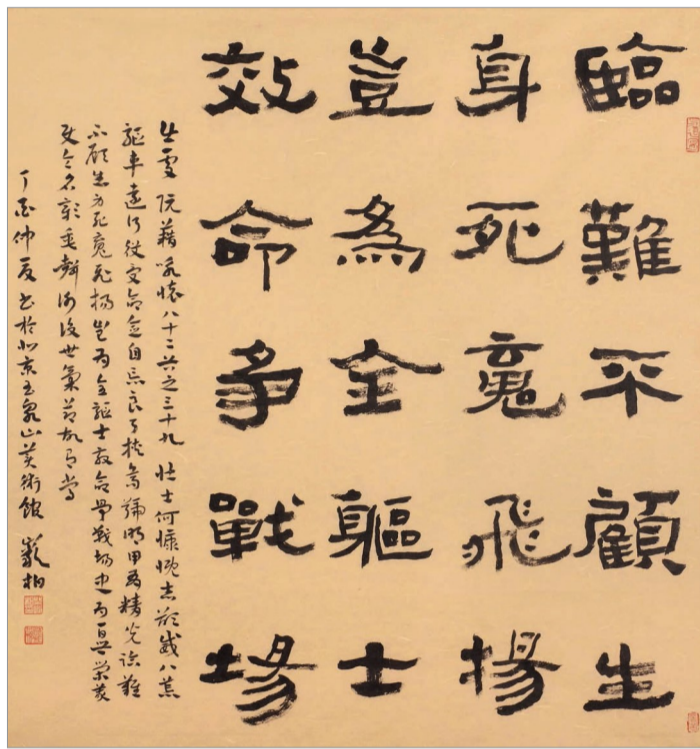 臨難不顧生
身死魂飛揚
豈為全軀士
效命爭戰場
阮籍咏懷八十二首之三十九 壯士何慷慨志欲威八荒
驅車遠行役受命念自忘良弓挾烏號明甲有精光臨難
不顧生身死魂飛揚豈為全軀士效命爭戰場忠為百世榮義
使令名彰垂聲謝後世氣節故有常
丁酉仲夏書於北京玉泉山美術館